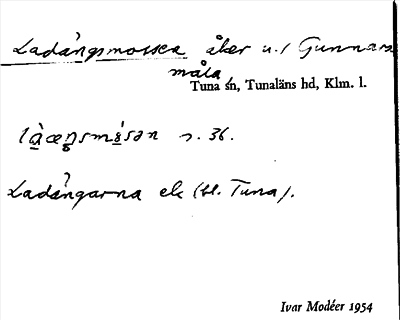 Ladångsmossen åker u./ Gunnars
måla
Tuna sn, Tunaläns hd, Klm. l.
s. 36.
Ladångarna ek (bl. Tuna).
Ivar Modéer 1954